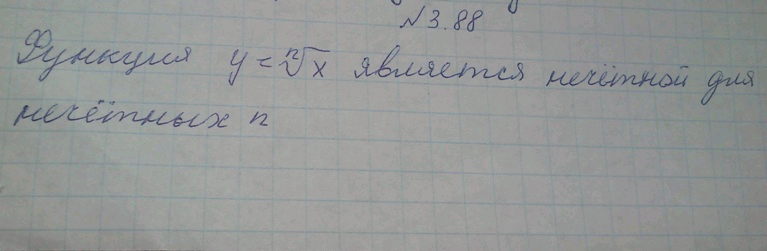 №3.88
Функция y = ⁿ√x является нечётной для
нечётных n